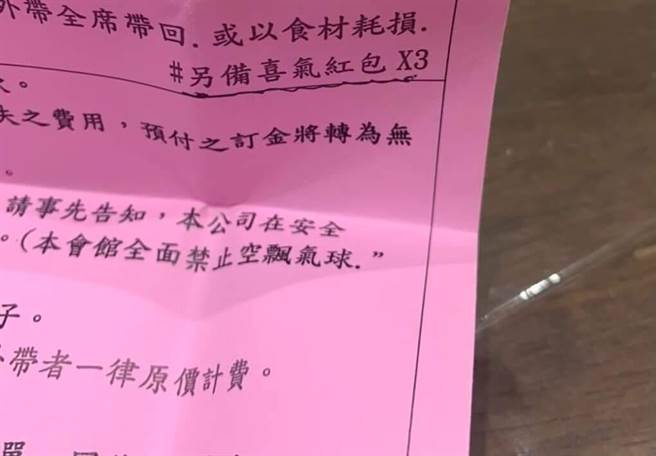 外帶全席帶回. 或以食材耗損.
#另備喜氣紅包 X3
。
失之費用，預付之訂金將轉為無
。
請事先告知，本公司在安全
。(本會館全面禁止空飄氣球.”
子。
帶者一律原價計費。
單